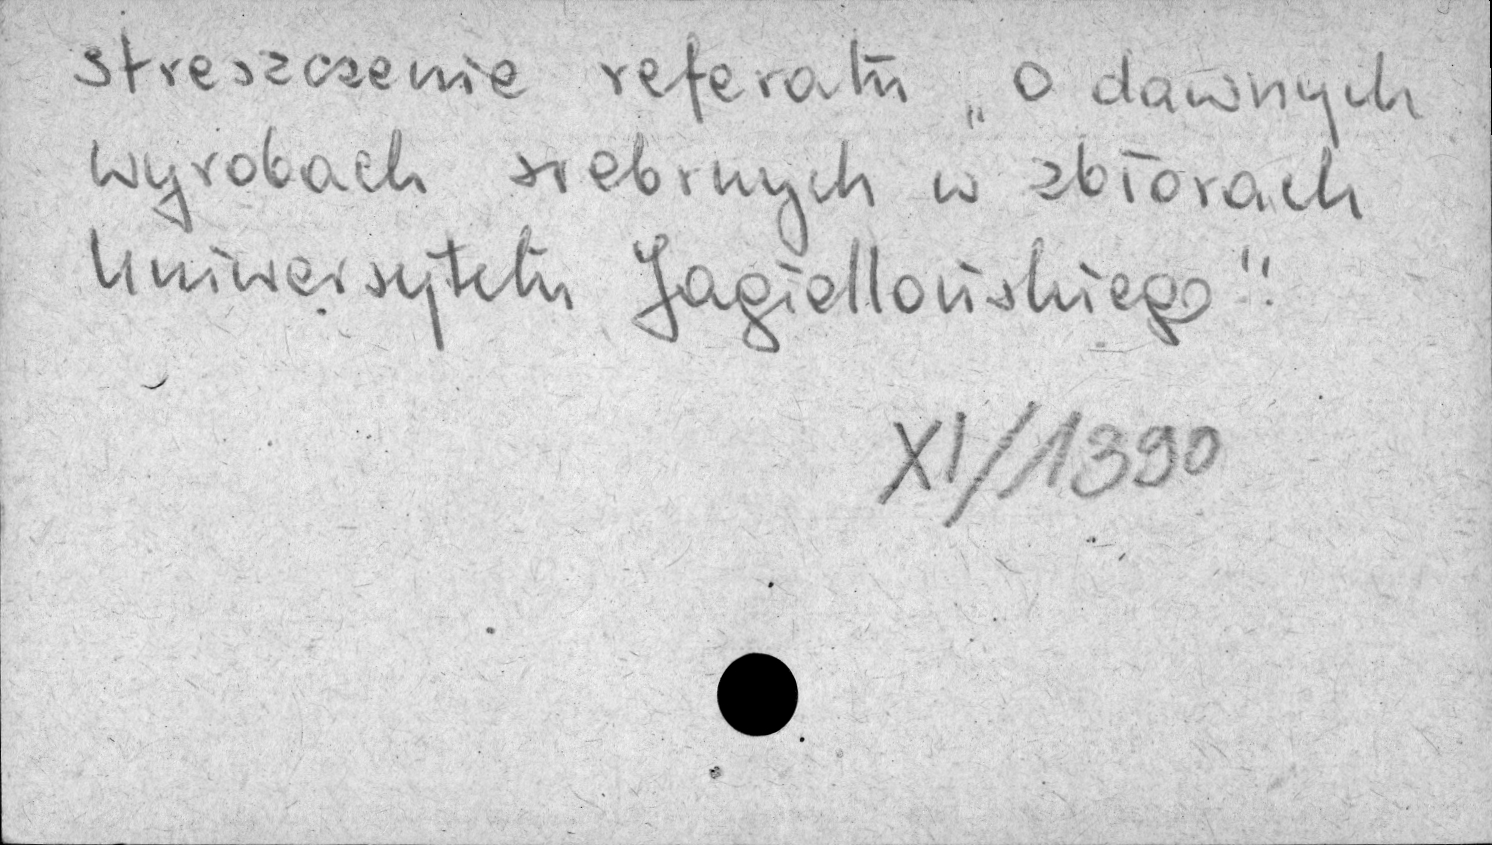 streszczenie referatu „O dawnych
wyrobach srebrnych w zbiorach
Uniwersytetu Jagiellońskiego".
XI/1390